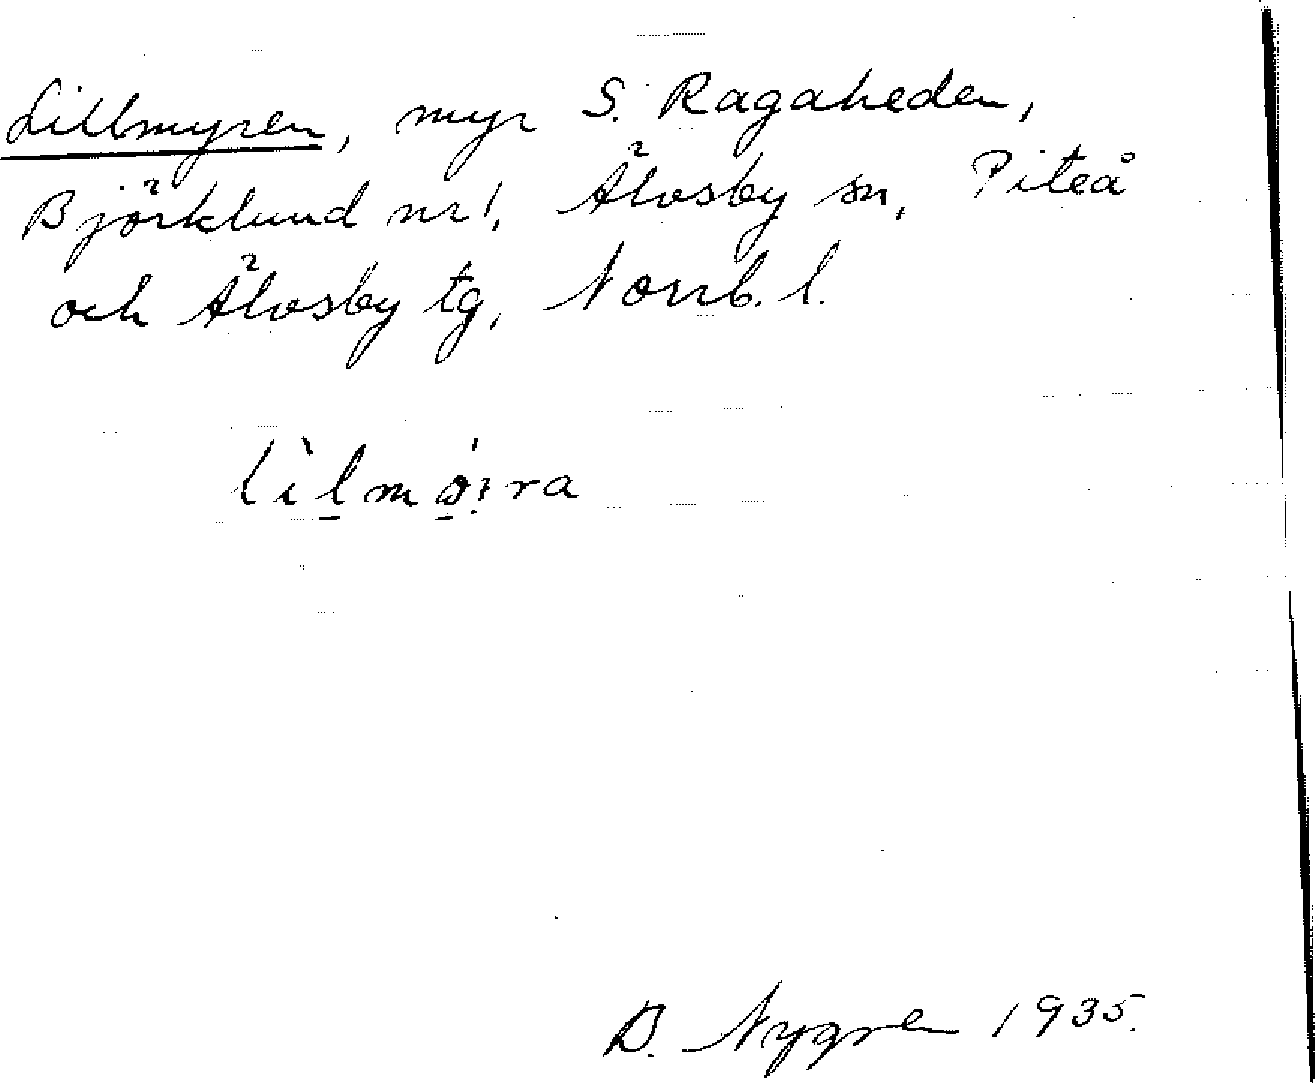 Lillmyren, myr S. Ragaheden,
Björklund nr 1, Älvsby sn, Piteå
och Älvsby tg, Norrb. l.
lìlmǿ̱i̯ra
B. Nygren 1935.